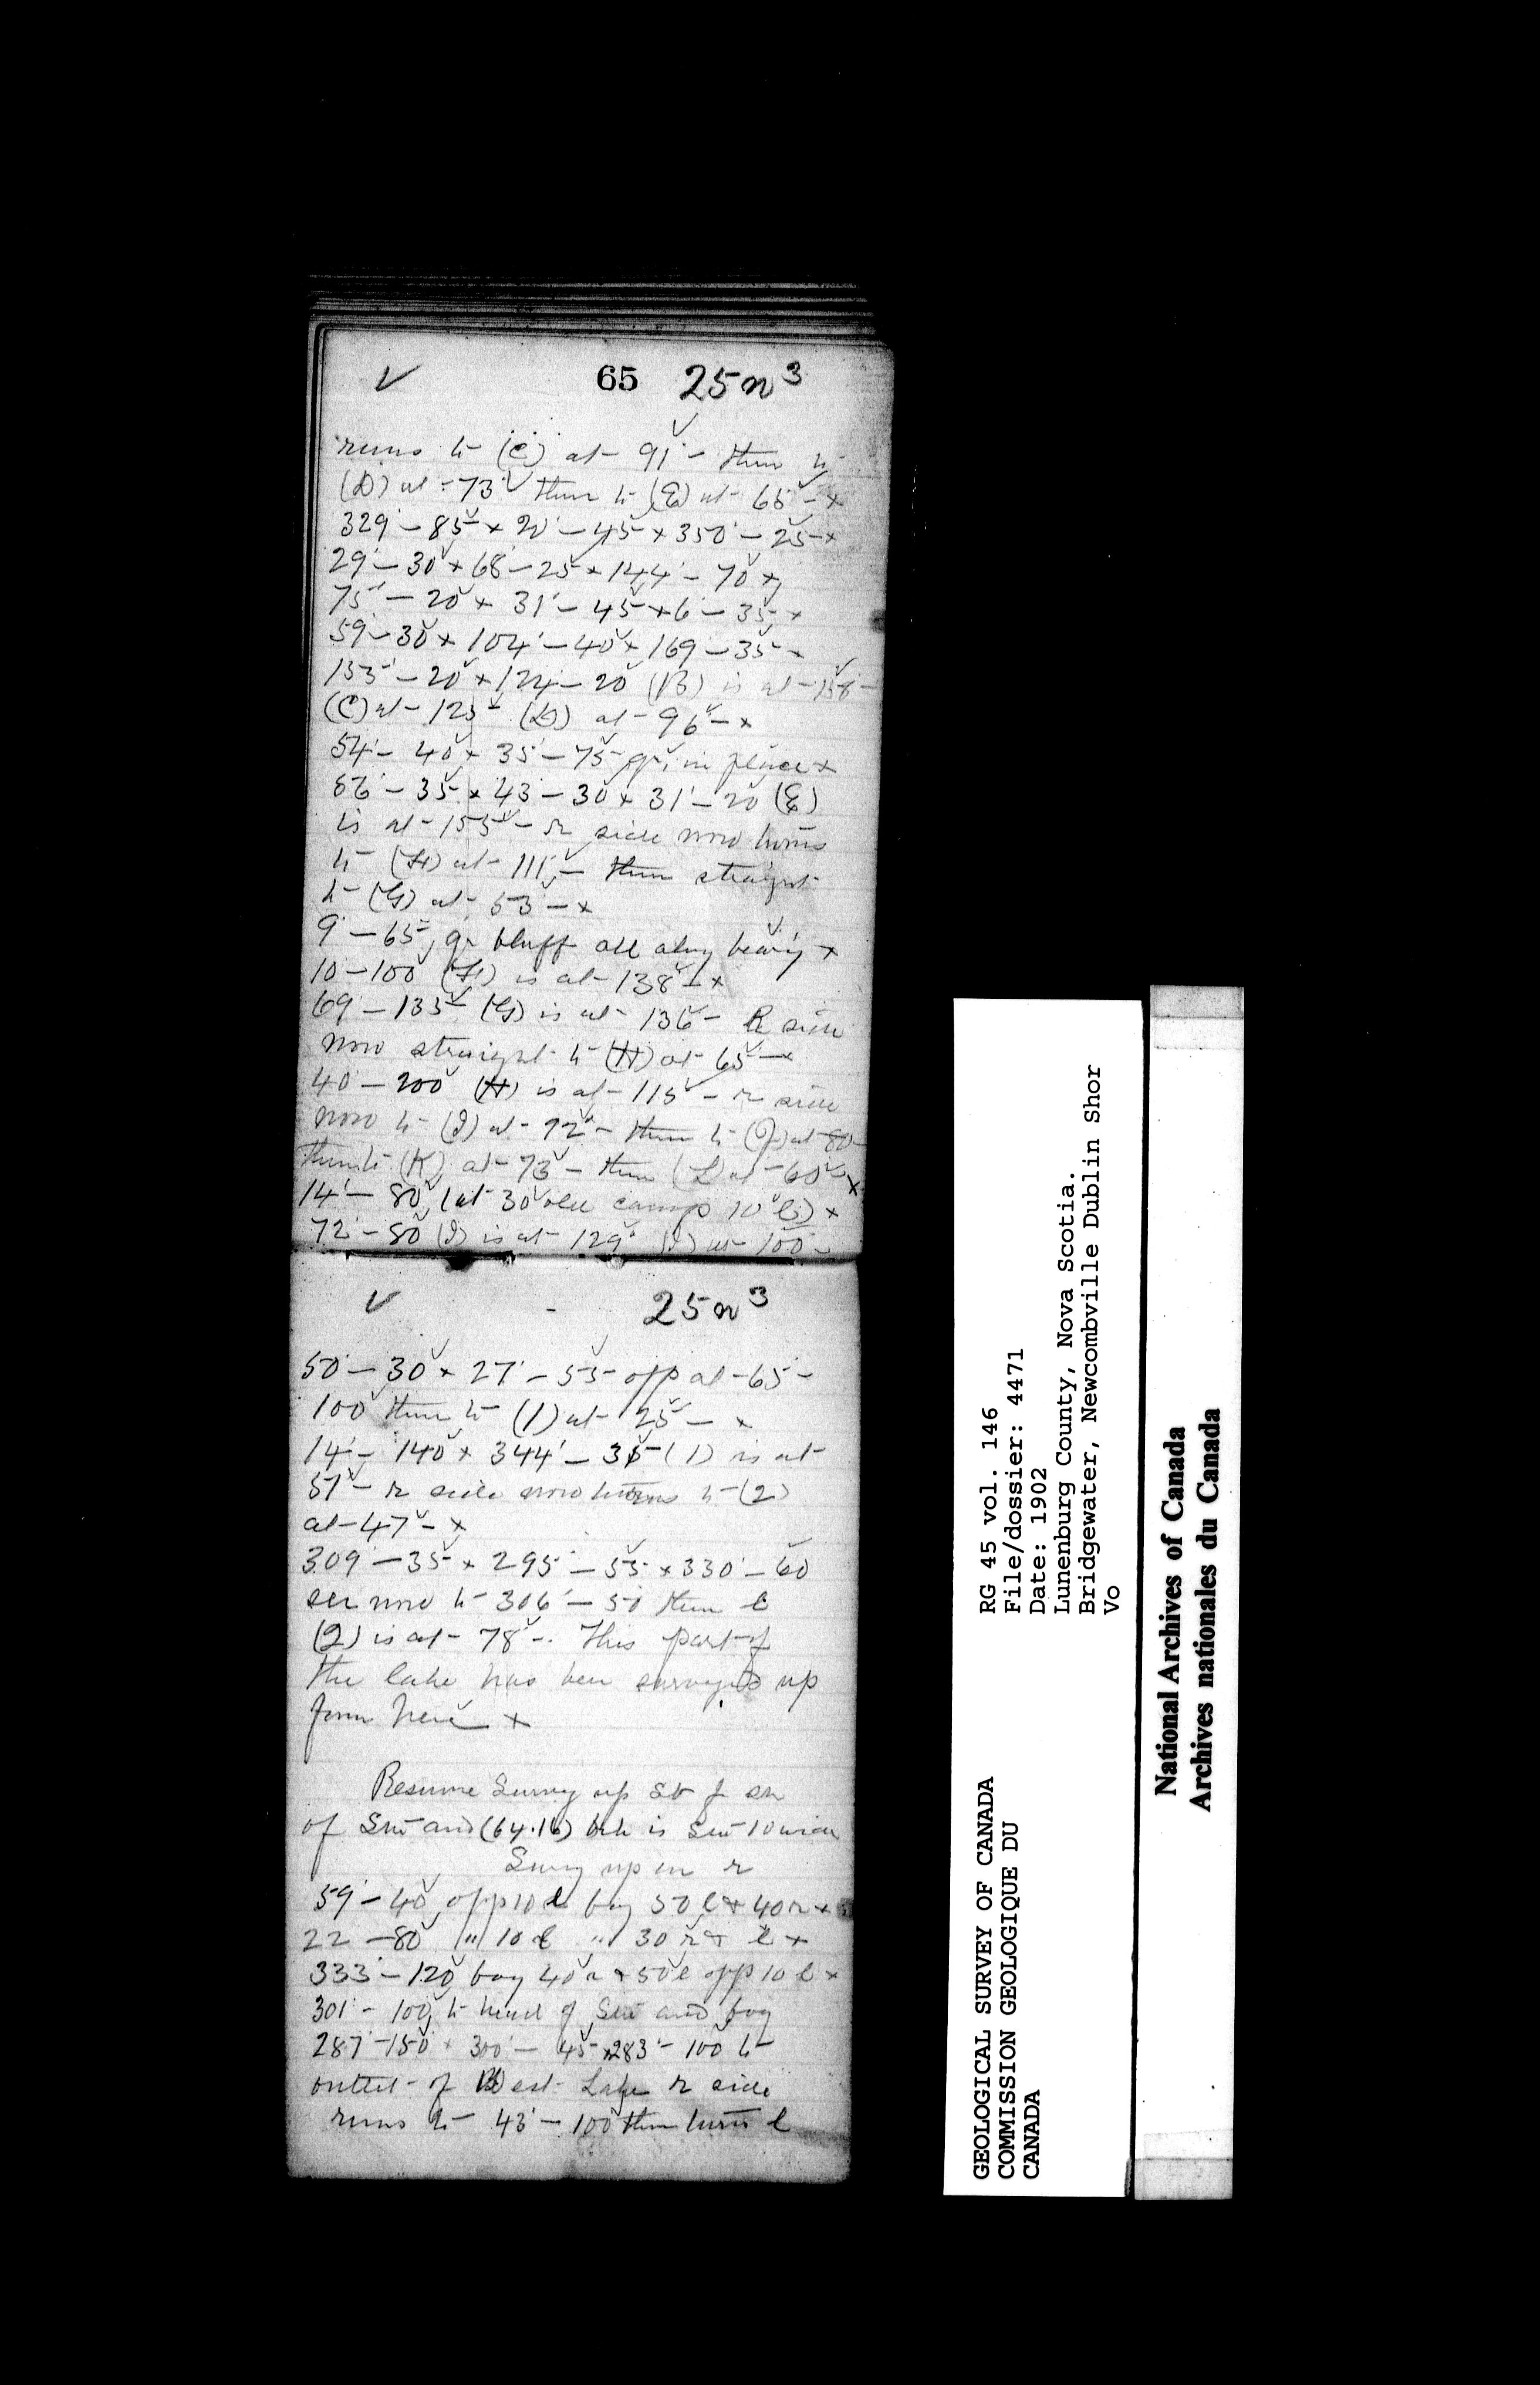 ✓ 65 25 n³
runs to (C) at 91· – then to
(D) at 73· then to (E) at 65 – x
329· – 85 x 20· – 45 x 350· – 25 x
29· – 30 x 68 – 25 x 144· – 70 x
75· – 20 x 31· – 45 x 6· – 35 x
59 – 30 x 104· – 40 x 169 – 35 x
153· – 20 x 124 – 20 (B) is at 158 –
(C) at 125 (D) at 96 – x
54· – 40 x 35· – 75 gr. in place x
86· – 35 x 43 – 30 x 31· – 20 (E)
is at 155 – r side now turns
to (F) at 111 – then straight
to (G) at 53 – x
9· – 65, gr bluff all along bearing x
10 – 100 (F) is at 138 – x
69 – 135 (G) is at 136 – R side
now straight to (H) at 65 – x
40 – 200 (H) is at 115 – r side
now to (I) at 92· – then to (J) at 80 –
then to (K) at 73 – then (L) at 60 x
14· – 80 (at 30 old camp 10 l) x
72· – 80 (I) is at 129· (J) at 100 –
✓ 25 n³
50· – 30 x 27· – 55 opp at 65 –
100 then to (1) at 25 – x
14· – 140 x 344· – 35 (1) is at
51 – r side now turns to (2)
at 47 – x
309· – 35 x 295· – 55 x 330· – 60
now to 306· – 50 then l
(2) is at 78 –. This part of
the lake has been surveyed up
from here x
Resume Survey up
of and (64.16) is 10 wide
Survey up on r
59· – 40, opp 10 l bog 50 l & 40 r x
22 – 80 " 10 l " 30 r & l x
333· – 120 bog 40 r & 50 l opp 10 l x
301· – 100, to head of and bog
287· – 150 x 300· – 45 x 283· – 100 to
outlet of West Lake r side
runs to 43· – 100 then turns l
GEOLOGICAL SURVEY OF CANADA
COMMISSION GEOLOGIQUE DU
CANADA
RG 45 vol. 146
File/dossier: 4471
Date: 1902
Lunenburg County, Nova Scotia.
Bridgewater, Newcombville Dublin Shor
Vo
National Archives of Canada
Archives nationales du Canada